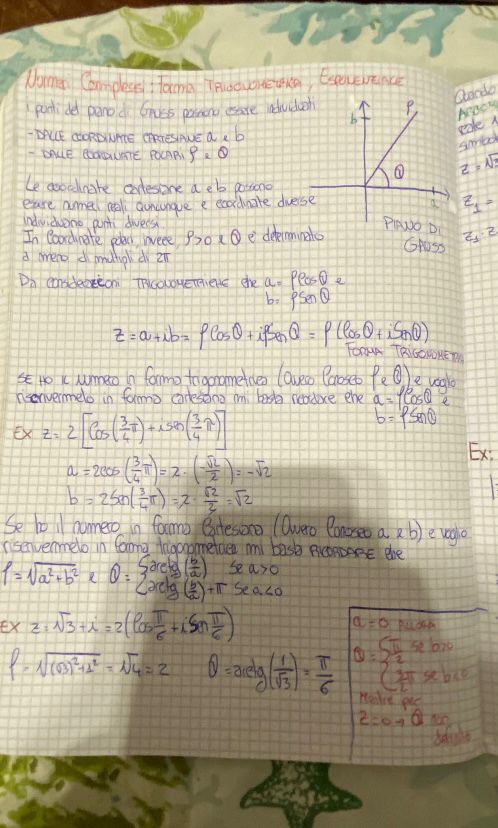 Numeri Complessi: Forma TRIGONOMETRICA, ESPONENZIALE
i punti del piano di Gauss possono essere individuati
- DALLE COORDINATE CARTESIANE a e b
- DALLE COORDINATE POLARI ρ e θ
b
ρ
θ
a
PIANO DI
GAUSS
Le coordinate cartesiane a e b possono
essere numeri reali qualunque e coordinate diverse
individuano punti diversi.
In Coordinate polari invece ρ>0 e θ è determinato
a meno di multipli di 2π
Da considerazioni TRIGONOMETRICHE che a = ρCosθ e
b = ρSenθ
z = a+ib = ρCosθ + iρSenθ = ρ(Cosθ + iSenθ)
FORMA TRIGONOMETRICA
SE HO IL numero in forma trigonometrica (Ovvero Conosco ρ e θ) e voglio
riscrivermelo in forma cartesiana mi basta ricordare che a = ρCosθ e
b = ρSenθ
EX z = 2[Cos(3/4 π) + i sen(3/4 π)]
a = 2cos(3/4 π) = 2·(-√2/2) = -√2
b = 2Sen(3/4 π) = 2·√2/2 = √2
Se ho il numero in forma Cartesiana (Ovvero Conosco a e b) e voglio
riscrivermelo in forma trigonometrica mi basta RICORDARE che
ρ = √a²+b² e θ = { arctg(b/a) Se a>0
{ arctg(b/a)+π Se a<0
EX z = √3 + i = 2(Cos π/6 + i Sen π/6)
ρ = √(√3)²+1² = √4 = 2 θ = arctg(1/√3) = π/6
a = 0 ALLORA
θ = { π/2 se b>0
{ 3/2 π se b<0
Mentre per
z=0 → θ non
definito
Quando
reale
z = √3
z₁ =
z₁·z
Ex: